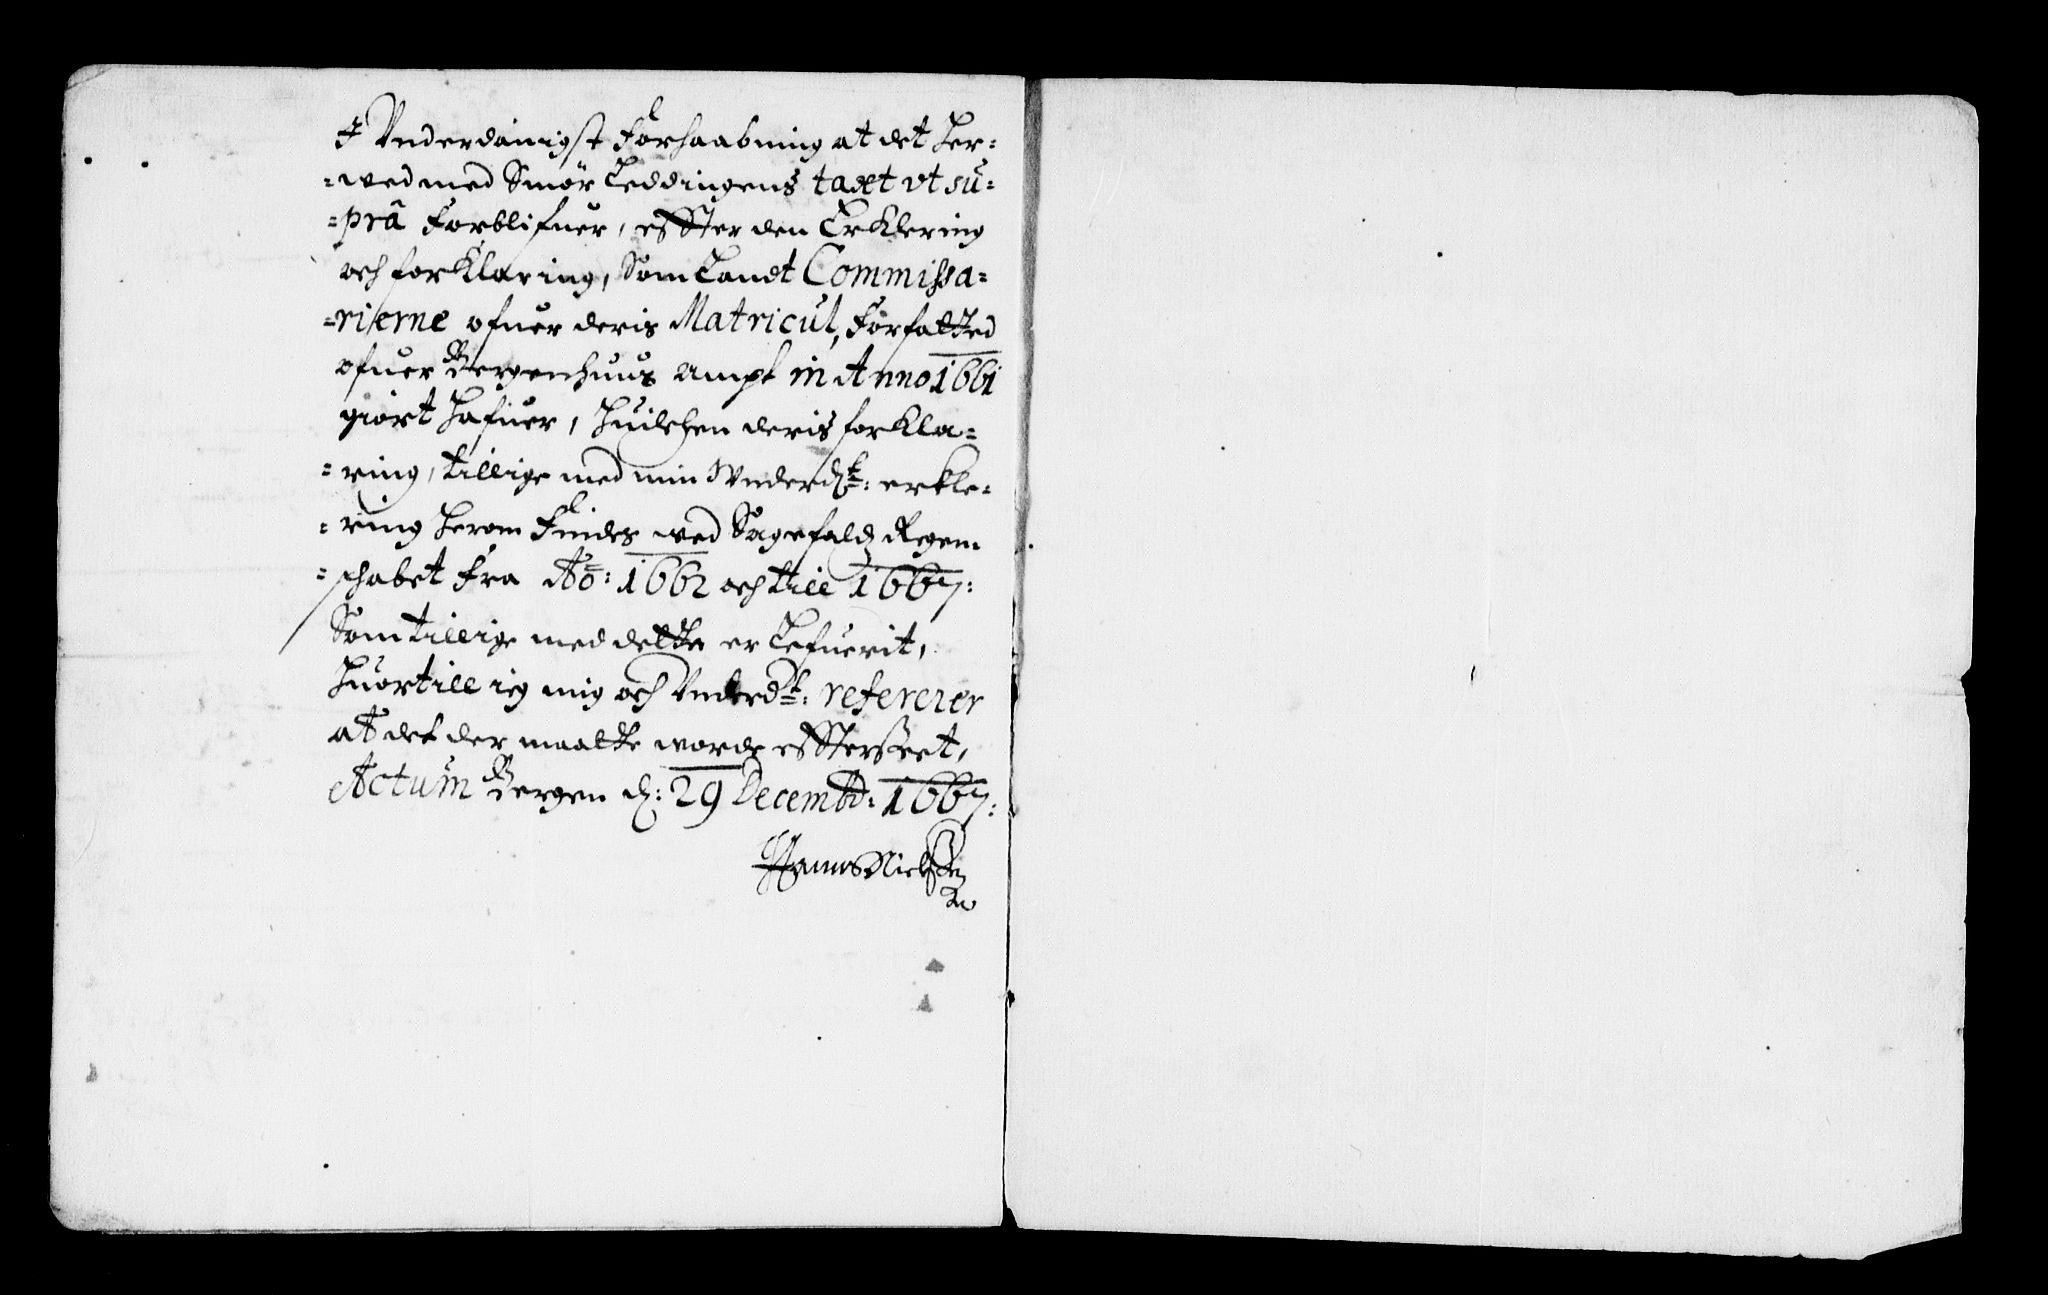 I Vnderdanigst forhaabning at det her=
=ved med Smør Leddingens taxt vt su=
=prâ forblifuer, effter den Erklering
och forklaring, Som Landt Commissa=
=rierne ofuer deris Matricul, forfatted
ofuer Bergenhuus Ampt in Anno 1661
giort hafuer, huilchen deris forkla=
=ring, tillige med min Vnderd: erkle=
=ring herom findes ved Sagefaldz Regen=
=schabet fra Ao: 1662 och till 1667:
Som tillige med dette er Lefuerit,
huortill ieg mig och Vnderd: refererer
at det der maatte vorde effterseet,
Actum Bergen d: 29 Decembr: 1667:
Hanns Nielssen